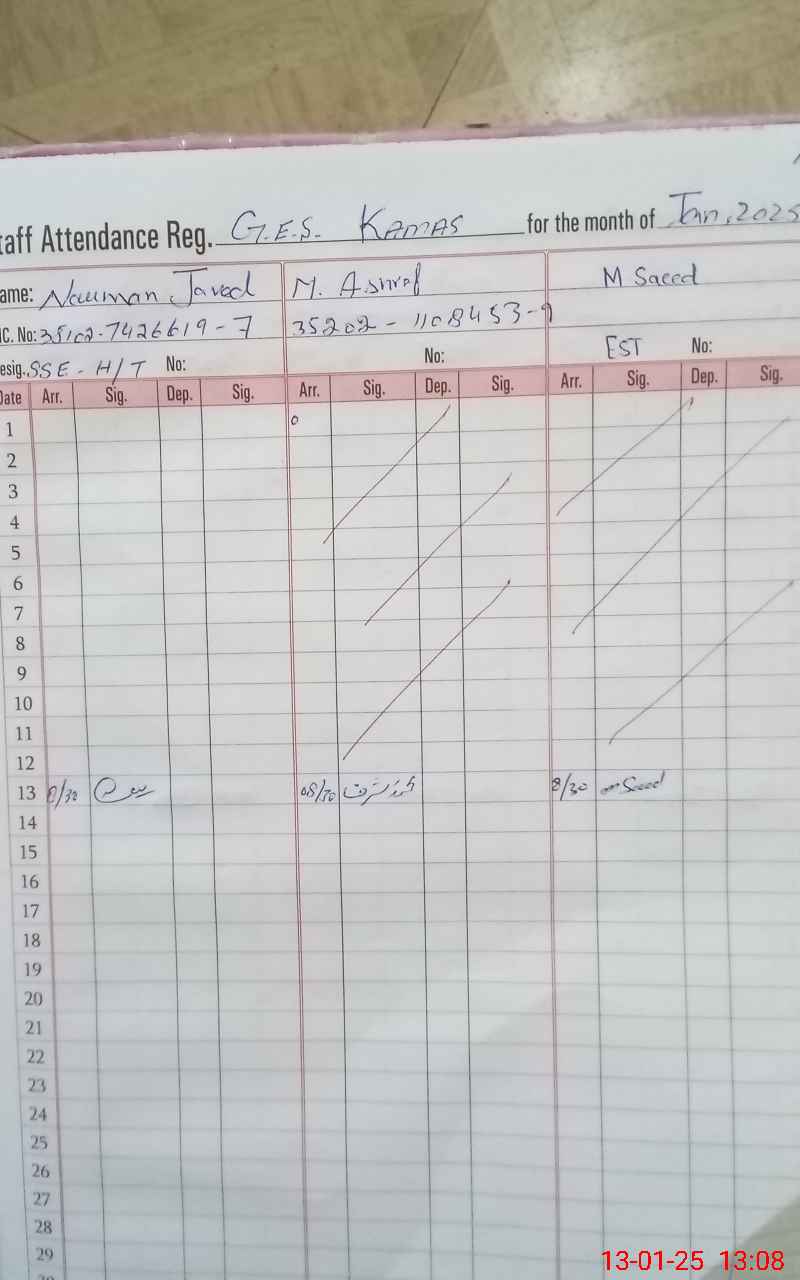 taff Attendance Reg. G.E.S. KAMAS for the month of Jan, 2025
ame: Nauman Javed M. Ashraf M Saeed
IC. No: 35102-7426619-7 35202-1108453-9
esig. SSE-H/T No: No: EST No:
Date Arr. Sig. Dep. Sig. Arr. Sig. Dep. Sig. Arr. Sig. Dep. Sig.
1
2
3
4
5
6
7
8
9
10
11
12
13 8/30 08/30 محمد اشرف 8/30 m Saeed
14
15
16
17
18
19
20
21
22
23
24
25
26
27
28
29
13-01-25 13:08